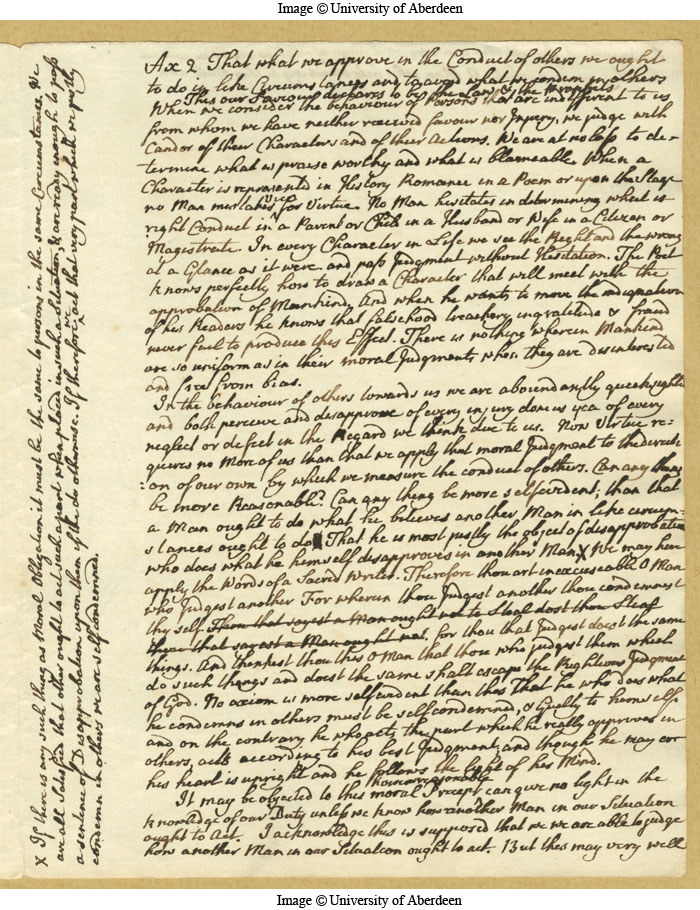 Image © University of Aberdeen
Ax 2 That what we approve in the Conduct of others we ought
to do in like Circumstances and to avoid what we condem in others
This our Saviour declares to be the Law & the Prophets
When we consider the behaviour of Persons that are indifferent to us
from whom we have neither received favour nor Injury, we judge with
Candor of their Characters and of their Actions. We are at no loss to de-
termine what is praise worthy and what is blameable When a
Character is represented in History Romance in a Poem or upon the Stage
no Man mistakes vice for Virtue. No Man hesitates in determining what is
right Conduct in a Parent or Child in a Husband or Wife in a Citizen or
Magistrate. In every Character in Life we see the Right and the wrong
at a Glance as it were and pass Judgment without Hesitation. The Poet
knows perfectly how to draw a Character that will meet with the
approbation of Mankind, And when he wants to move the indignation
of his Readers he knows that falsehood treachery ingratitude & fraud
never fail to produce this Effect. There is nothing wherein Mankind
are so uniform as in their moral Judgments when they are disinterested
and free from bias.
In the behaviour of others towards us we are abundantly quicksighted
and both perceive and disapprove of every injury done us yea of every
neglect or defect in the Regard we think due to us. Now Virtue re-
quires no More of us than that we apply that moral Judgment to the directi
:on of our own by which we measure the conduct of others. Can any thing
be more Reasonable? Can any thing be more selfevident, than that
a Man ought to do what he believes another Man in like circum-
stances ought to do That he is most justly the object of disapprobation
who does what he himself disapproves in another Man. X We may here
apply the Words of a Sacred Writer. Therefore thou art inexcuseable O Man
who Judgest another For wherein thou Judgest another thou condemnest
thy self Thou that sayest a Man ought not to Steal dost thou Steal
thou that sayest a Man ought not. for thou that Judgest doest the same
things. And thinkest thou this O Man that thou who judgest them which
do such things and doest the same shalt escape the Righteous Judgment
of God. No axiom is more selfevident than this That he who does what
he condemns in others must be selfcondemned, & Guilty to himself
and on the contrary he who acts the part which he really approves in
others, acts according to his best Judgment, and though he may err
his heart is upright and he follows the light of his Mind.
however reasonable
It may be objected to this moral Precept can give no light in the
knowledge of our Duty unless we know how another Man in our Situation
ought to Act. I acknowledge this is supposed that we are able to judge
how another Man in our Situation ought to act. But this may very well
X If there is any such thing as Moral Obligation it must be the same to persons in the same Circumstances. We
are all Satisfied that others ought to act such a part when placed in such a Situation, & are ready enough to pass
a sentence of Disapprobation upon them if they do otherwise. If therefore we act that very part which we justly
condemn in others we are self condemned.
Image © University of Aberdeen